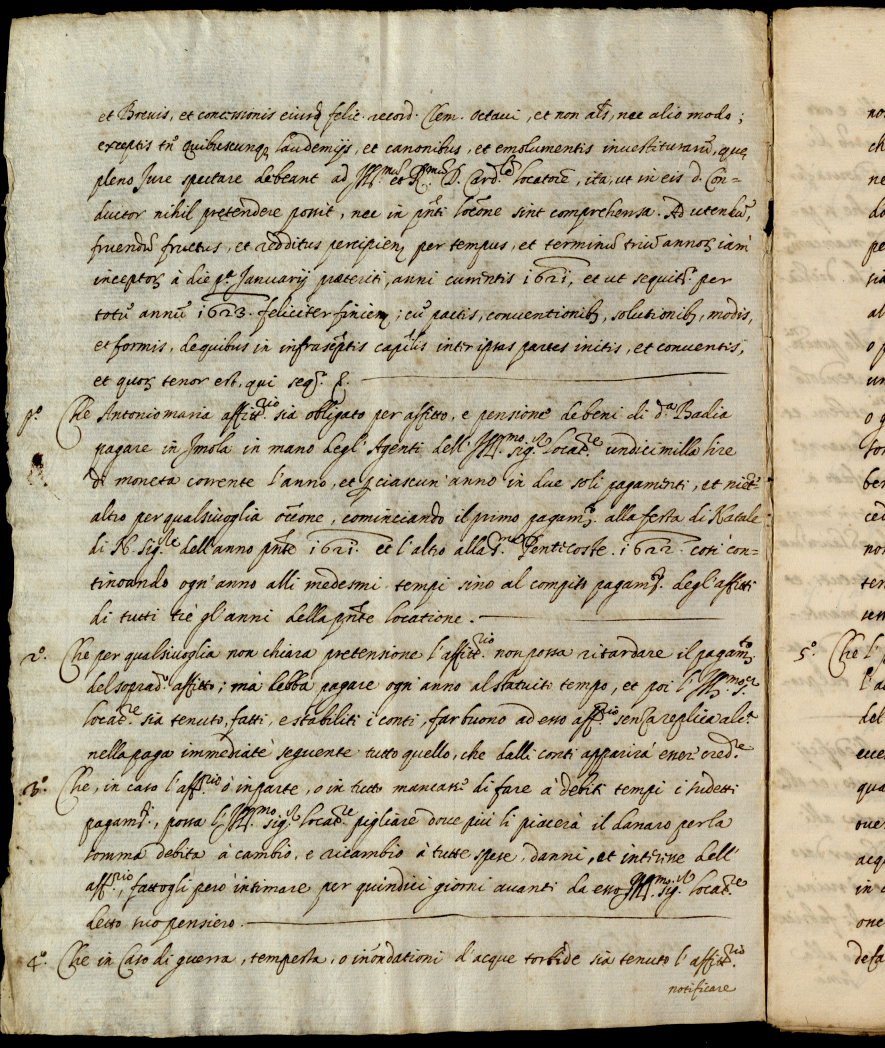 et Breuis, et concessionis eiusd. felic. record. Clem. Octaui, et non aļs, nec alio modo;
exceptis tn̄ quibuscunq, laudemijs, et canonibus, et emolumentis inuestiturarū, que
pleno Jure spectare debeant ad Jll.mū et R.mū D. Card.lē locatorē, ita, ut in eis d. Con=
ductor nihil pretendere possit, nec in pn̄ti loc̄one sint comprehensa. Ad utendū,
fruendū fructus, et redditus percipien, per tempus, et terminū triū annoꝝ iam
inceptoꝝ à die p.ª Januarij praeteriti, anni currentis 1621, et ut sequitr. per
totū annū 1623. feliciter finien; cū pactis, conuentionib, solutionib, modis,
et formis, de quibus in infrasc̄ptis cap̄lis inter ip̄tas partes initis, et conuentis,
et quoꝝ tenor est, qui seqr. &.
p.º Che Antoniomaria affitt.rio sia obligato per affitto, e pensione de beni di d.ª Badia
pagare in Jmola in mano degl' Agenti dell' Jll.mo sig.r locat.re undicimilla lire
di moneta corrente l'anno, et p ciascun' anno in due soli pagamenti, et niet.
altro per qualsiuoglia occ̄one, cominciando il primo pagam.to alla festa di Natale
di N. Sig.re dell'anno pn̄te 1621. et l'altro alla Penticoste. 1622. cosi con=
tinoando ogn'anno alli medesmi tempi sino al compito pagam.to degl'affitti
di tutti trè gl'anni della pn̄te locatione.
2.º Che per qualsiuoglia non chiara pretensione l'affitt.rio non possa ritardare il pagam.to
del soprad.º affitto; mà debba pagare ogn'anno al statuiti tempo, et poi l'Jll.mo s.r
locat.re sia tenuto, fatti, e stabiliti i conti, far buono ad esso aff.rio senza replica alc.ª
nella paga immediatè seguente tutto quello, che dalli conti apparirà esser cred.re
3.º Che, in caso l'aff.rio ò in parte, o in tutto mancassi di fare a' debiti tempi i sudetti
pagam.ti, possa l'Jll.mo sig.r locat.re pigliare doue più li piacerà il danaro per la
somma debita à cambio, e ricambio à tutte spese, danni, et interesse dell'
aff.rio, fattogli però intimare per quindici giorni auanti da esso Jll.mo sig.r locat.re
detto suo pensiero.
4.º Che in Caso di guerra, tempesta, o inondationi d'acque torbide sia tenuto l'affitt.rio
notificare
5.º Che l'